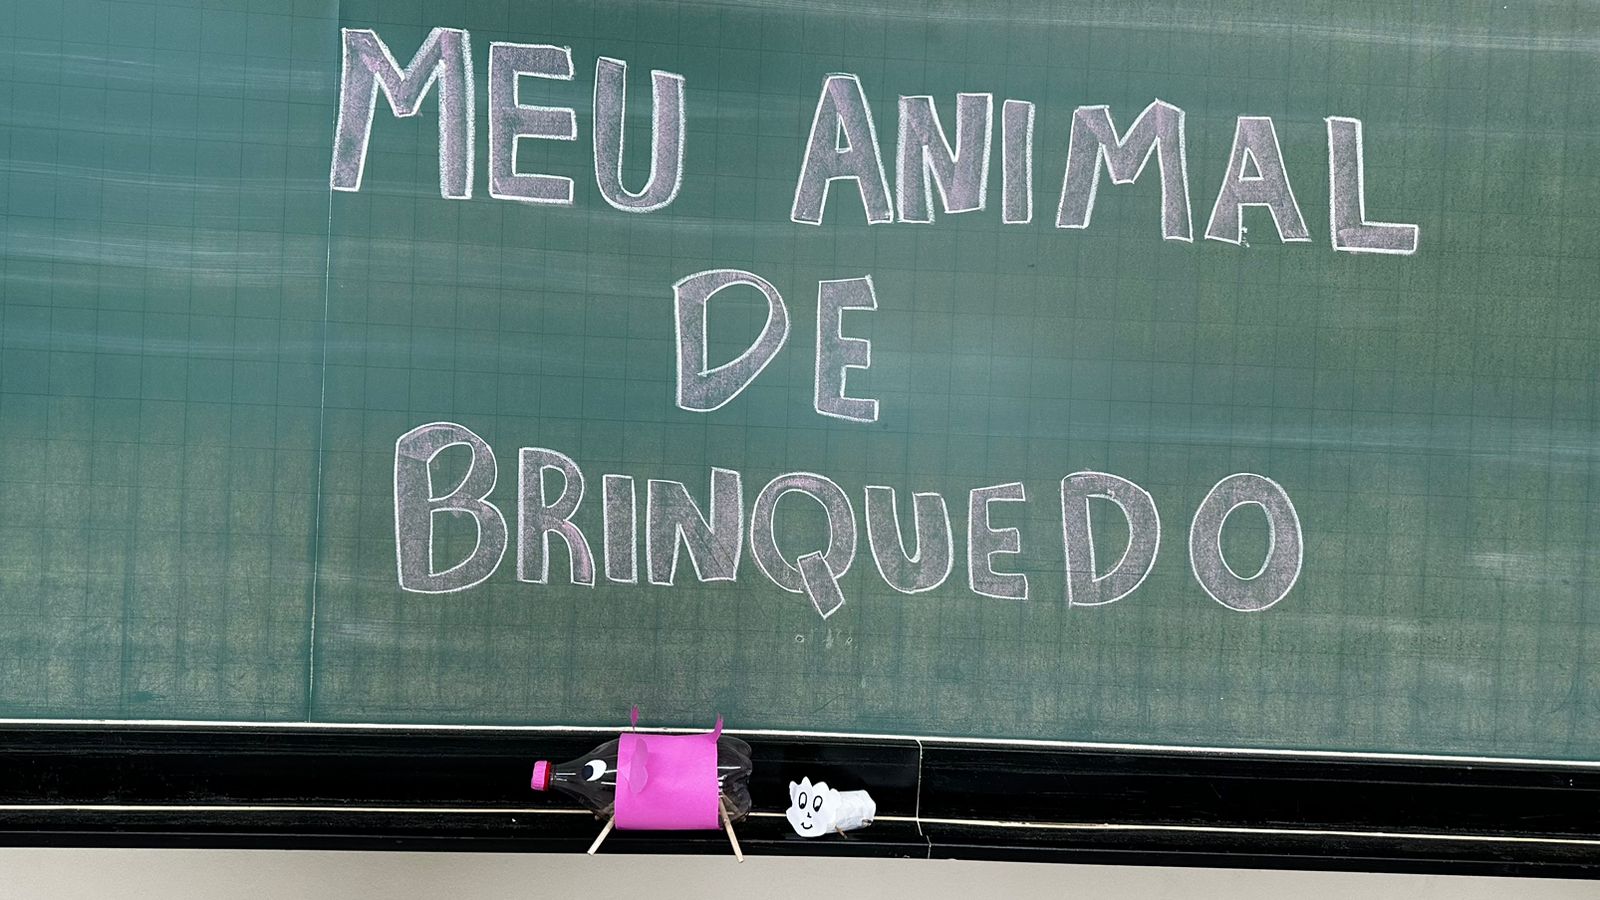 MEU ANIMAL
DE
BRINQUEDO